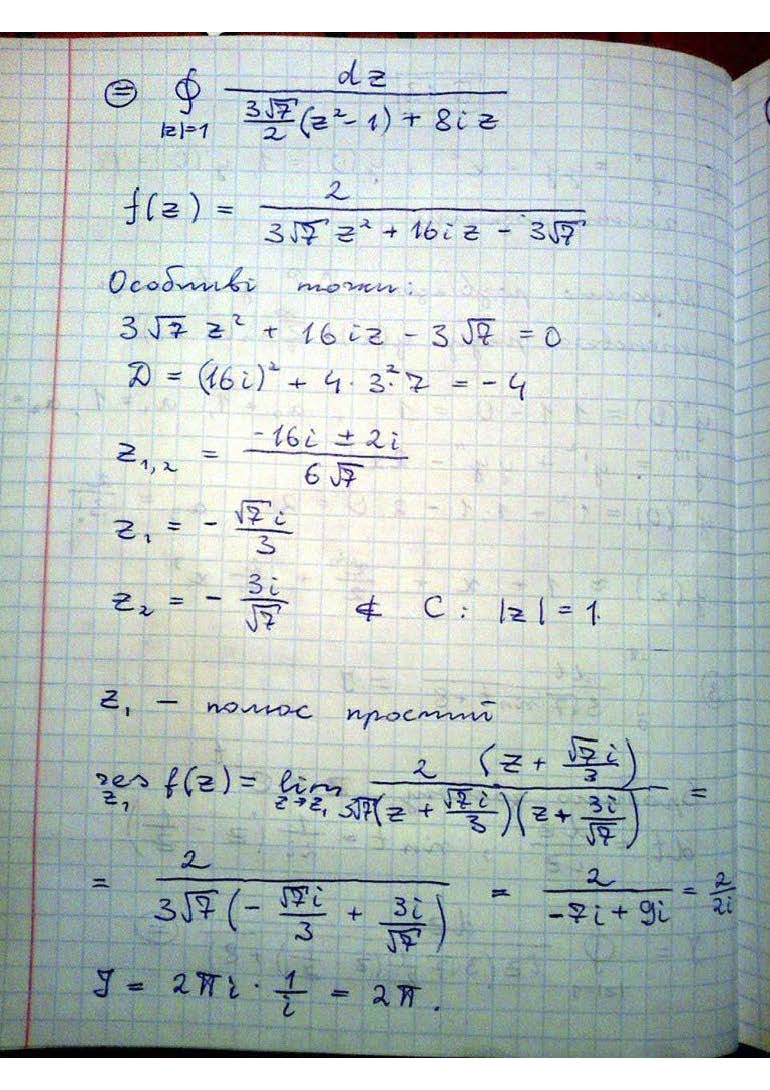 = ∮_{|z|=1} dz / (3√7/2 (z² - 1) + 8iz)
f(z) = 2 / (3√7 z² + 16iz - 3√7)
Особливі точки:
3√7 z² + 16iz - 3√7 = 0
D = (16i)² + 4·3²·7 = -4
z₁,₂ = (-16i ± 2i) / (6√7)
z₁ = - √7i/3
z₂ = - 3i/√7 ∉ C: |z| = 1.
z₁ - полюс простий
res_{z₁} f(z) = lim_{z→z₁} 2 (z + √7i/3) / (3√7(z + √7i/3)(z + 3i/√7)) =
= 2 / (3√7(- √7i/3 + 3i/√7)) = 2 / (-7i + 9i) = 2/2i
J = 2πi · 1/i = 2π.